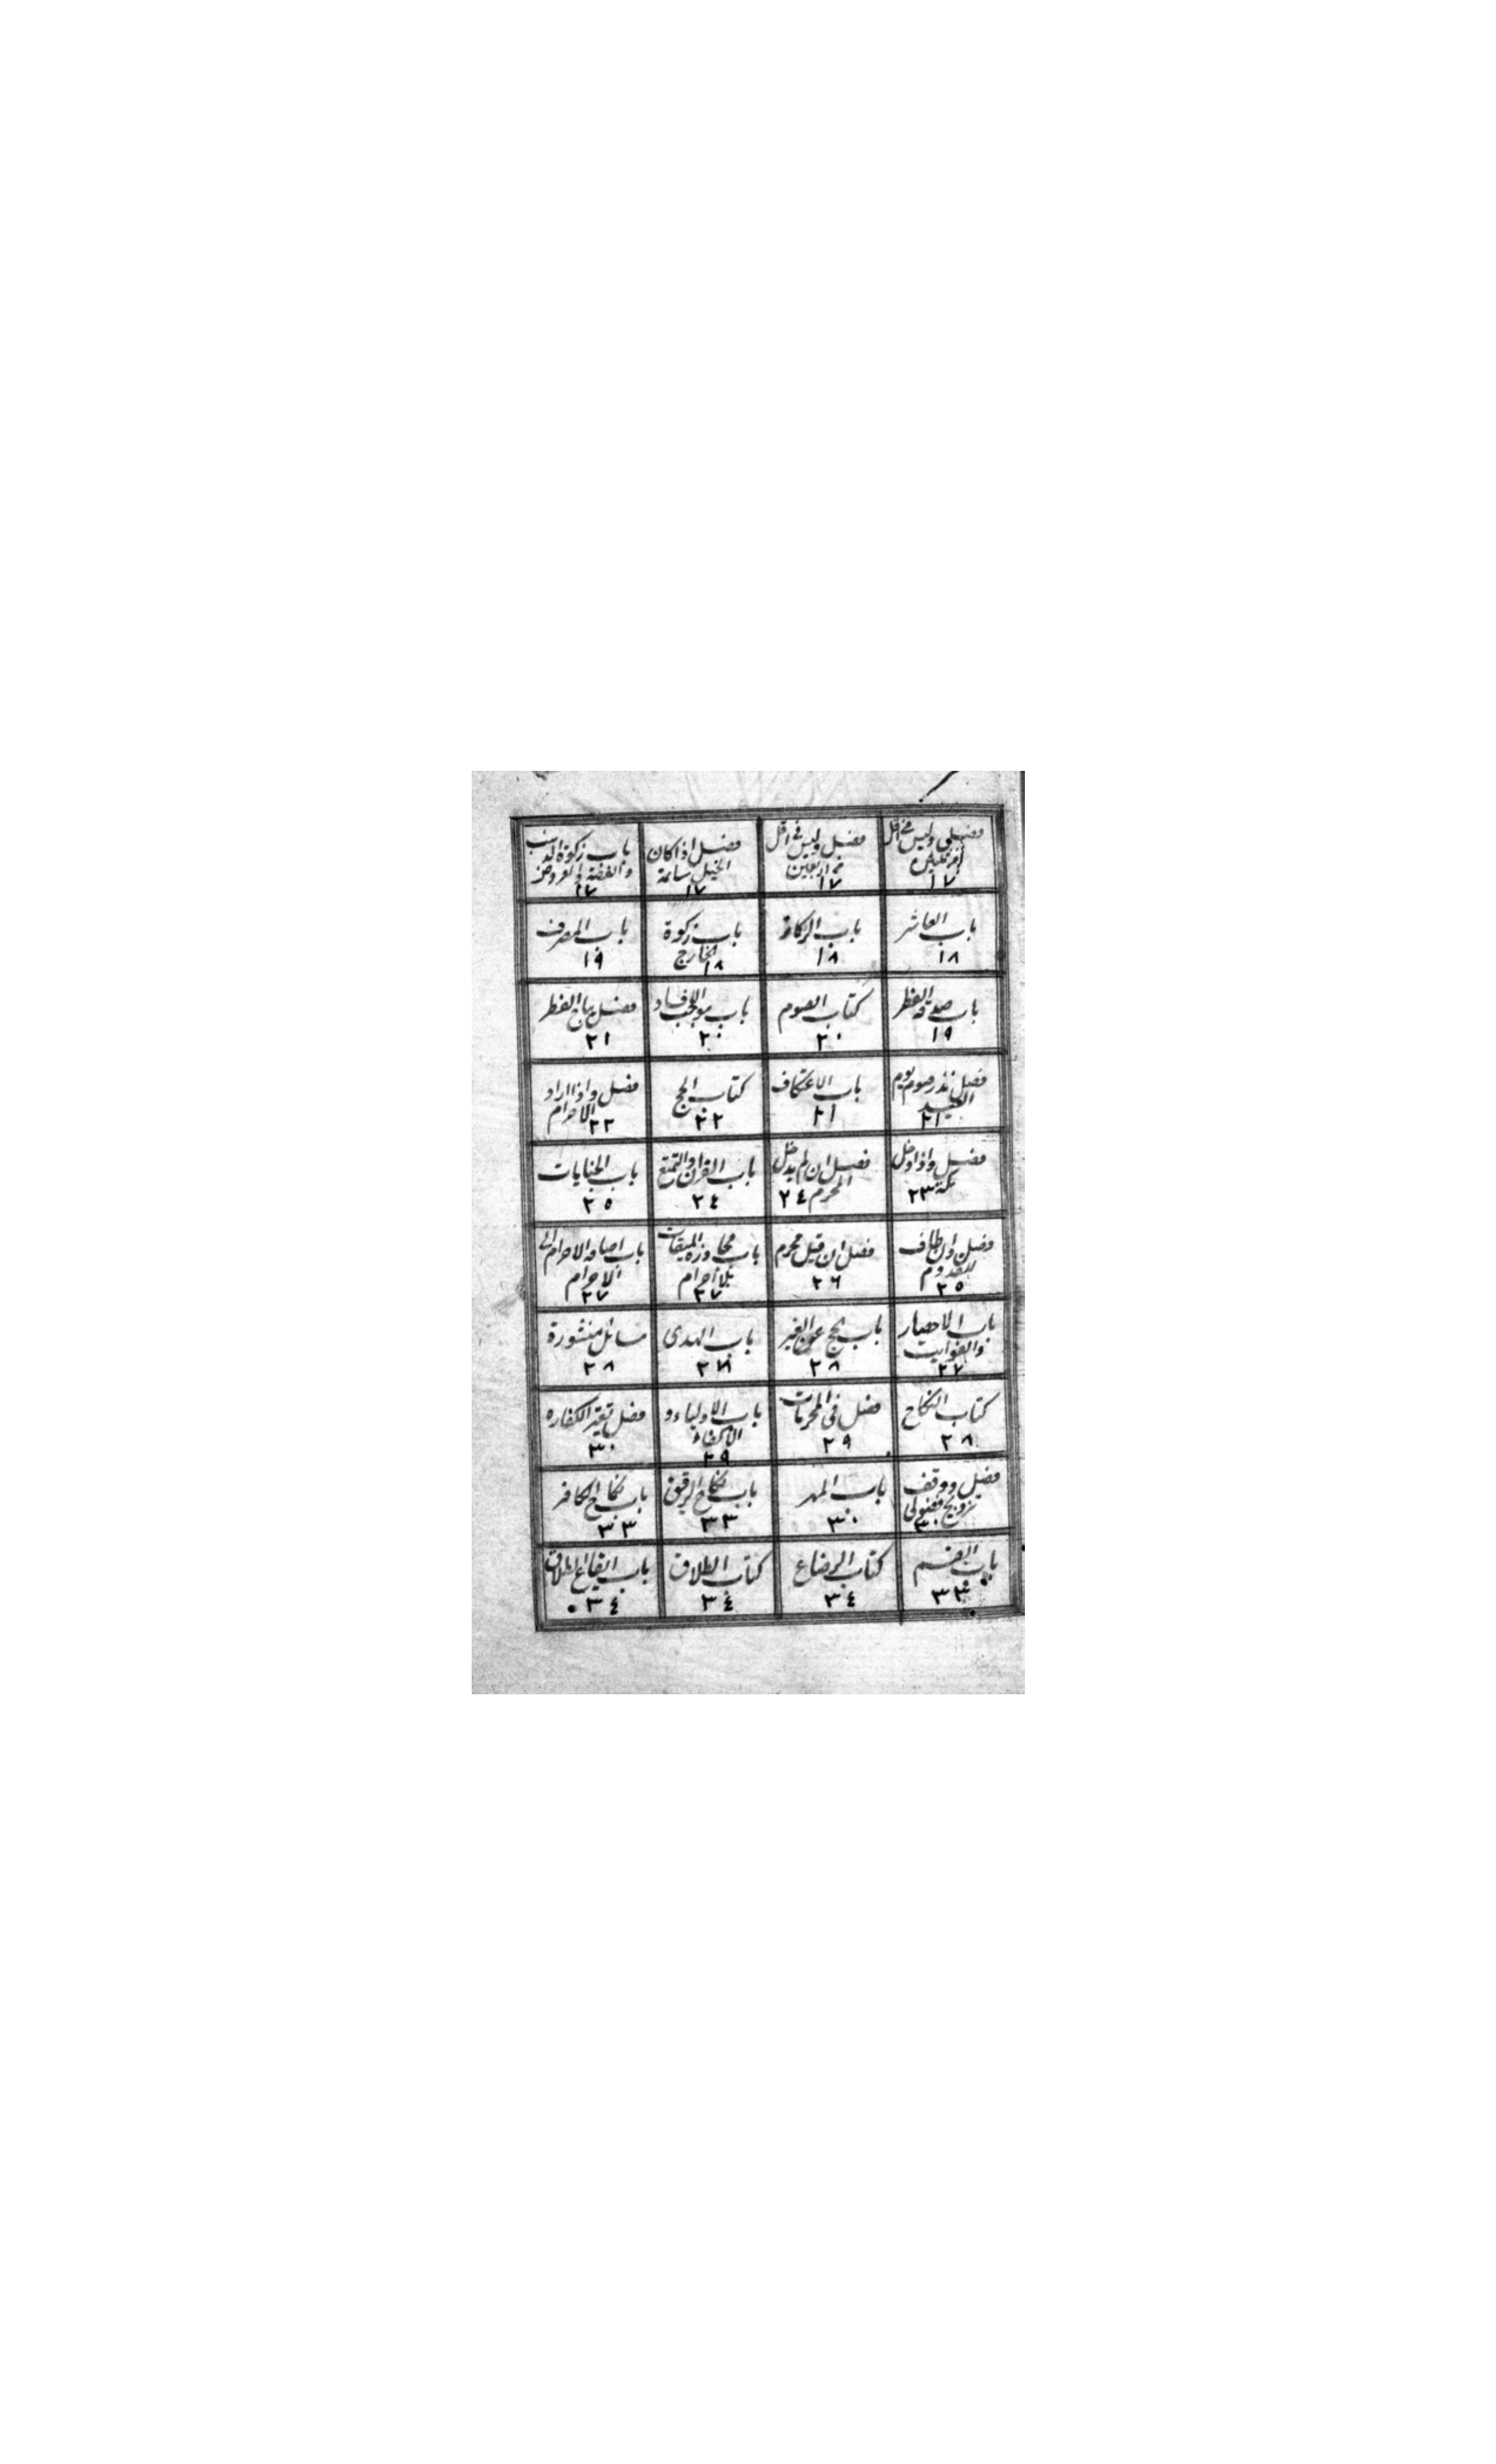 فصل وليس في اقل
من ثلثين
١٧
فصل وليس في اقل
من اربعين
١٧
فصل اذا كان
الخيل سائمة
١٧
باب زكوة الذهب
والفضة والعروض
١٧
باب العاشر
١٨
باب الركاز
١٨
باب زكوة
الخارج
١٨
باب المصرف
١٩
باب صدقة الفطر
١٩
كتاب الصوم
٢٠
باب موجب الافساد
٢٠
فصل يباح الفطر
٢١
فصل نذر صوم يوم
العيد
٢١
باب الاعتكاف
٢١
كتاب الحج
٢٢
فصل واذا اراد
الاحرام
٢٢
فصل واذا دخل
مكة ٢٣
فصل ان لم يدخل
المحرم ٢٤
باب القران والتمتع
٢٤
باب الجنايات
٢٥
فصل وان طاف
للقدوم
٢٥
فصل ان قتل محرم
٢٦
باب مجاوزة الميقات
بلا احرام
٢٧
باب اضافة الاحرام الى
الاحرام
٢٧
باب الاحصار
والفوات
٢٧
باب الحج عن الغير
٢٨
باب الهدى
٢٨
مسائل منثورة
٢٨
كتاب النكاح
٢٨
فصل في المحرمات
٢٩
باب الاولياء و
الاكفاء
٢٩
فصل تعتبر الكفاره
٣٠
فصل ووقف
تزويج فضولى
٣٠
باب المهر
٣٠
باب نكاح الرقيق
٣٣
باب نكاح الكافر
٣٣
باب القسم
٣٣
كتاب الرضاع
٣٤
كتاب الطلاق
٣٤
باب ايقاع الطلاق
٣٤